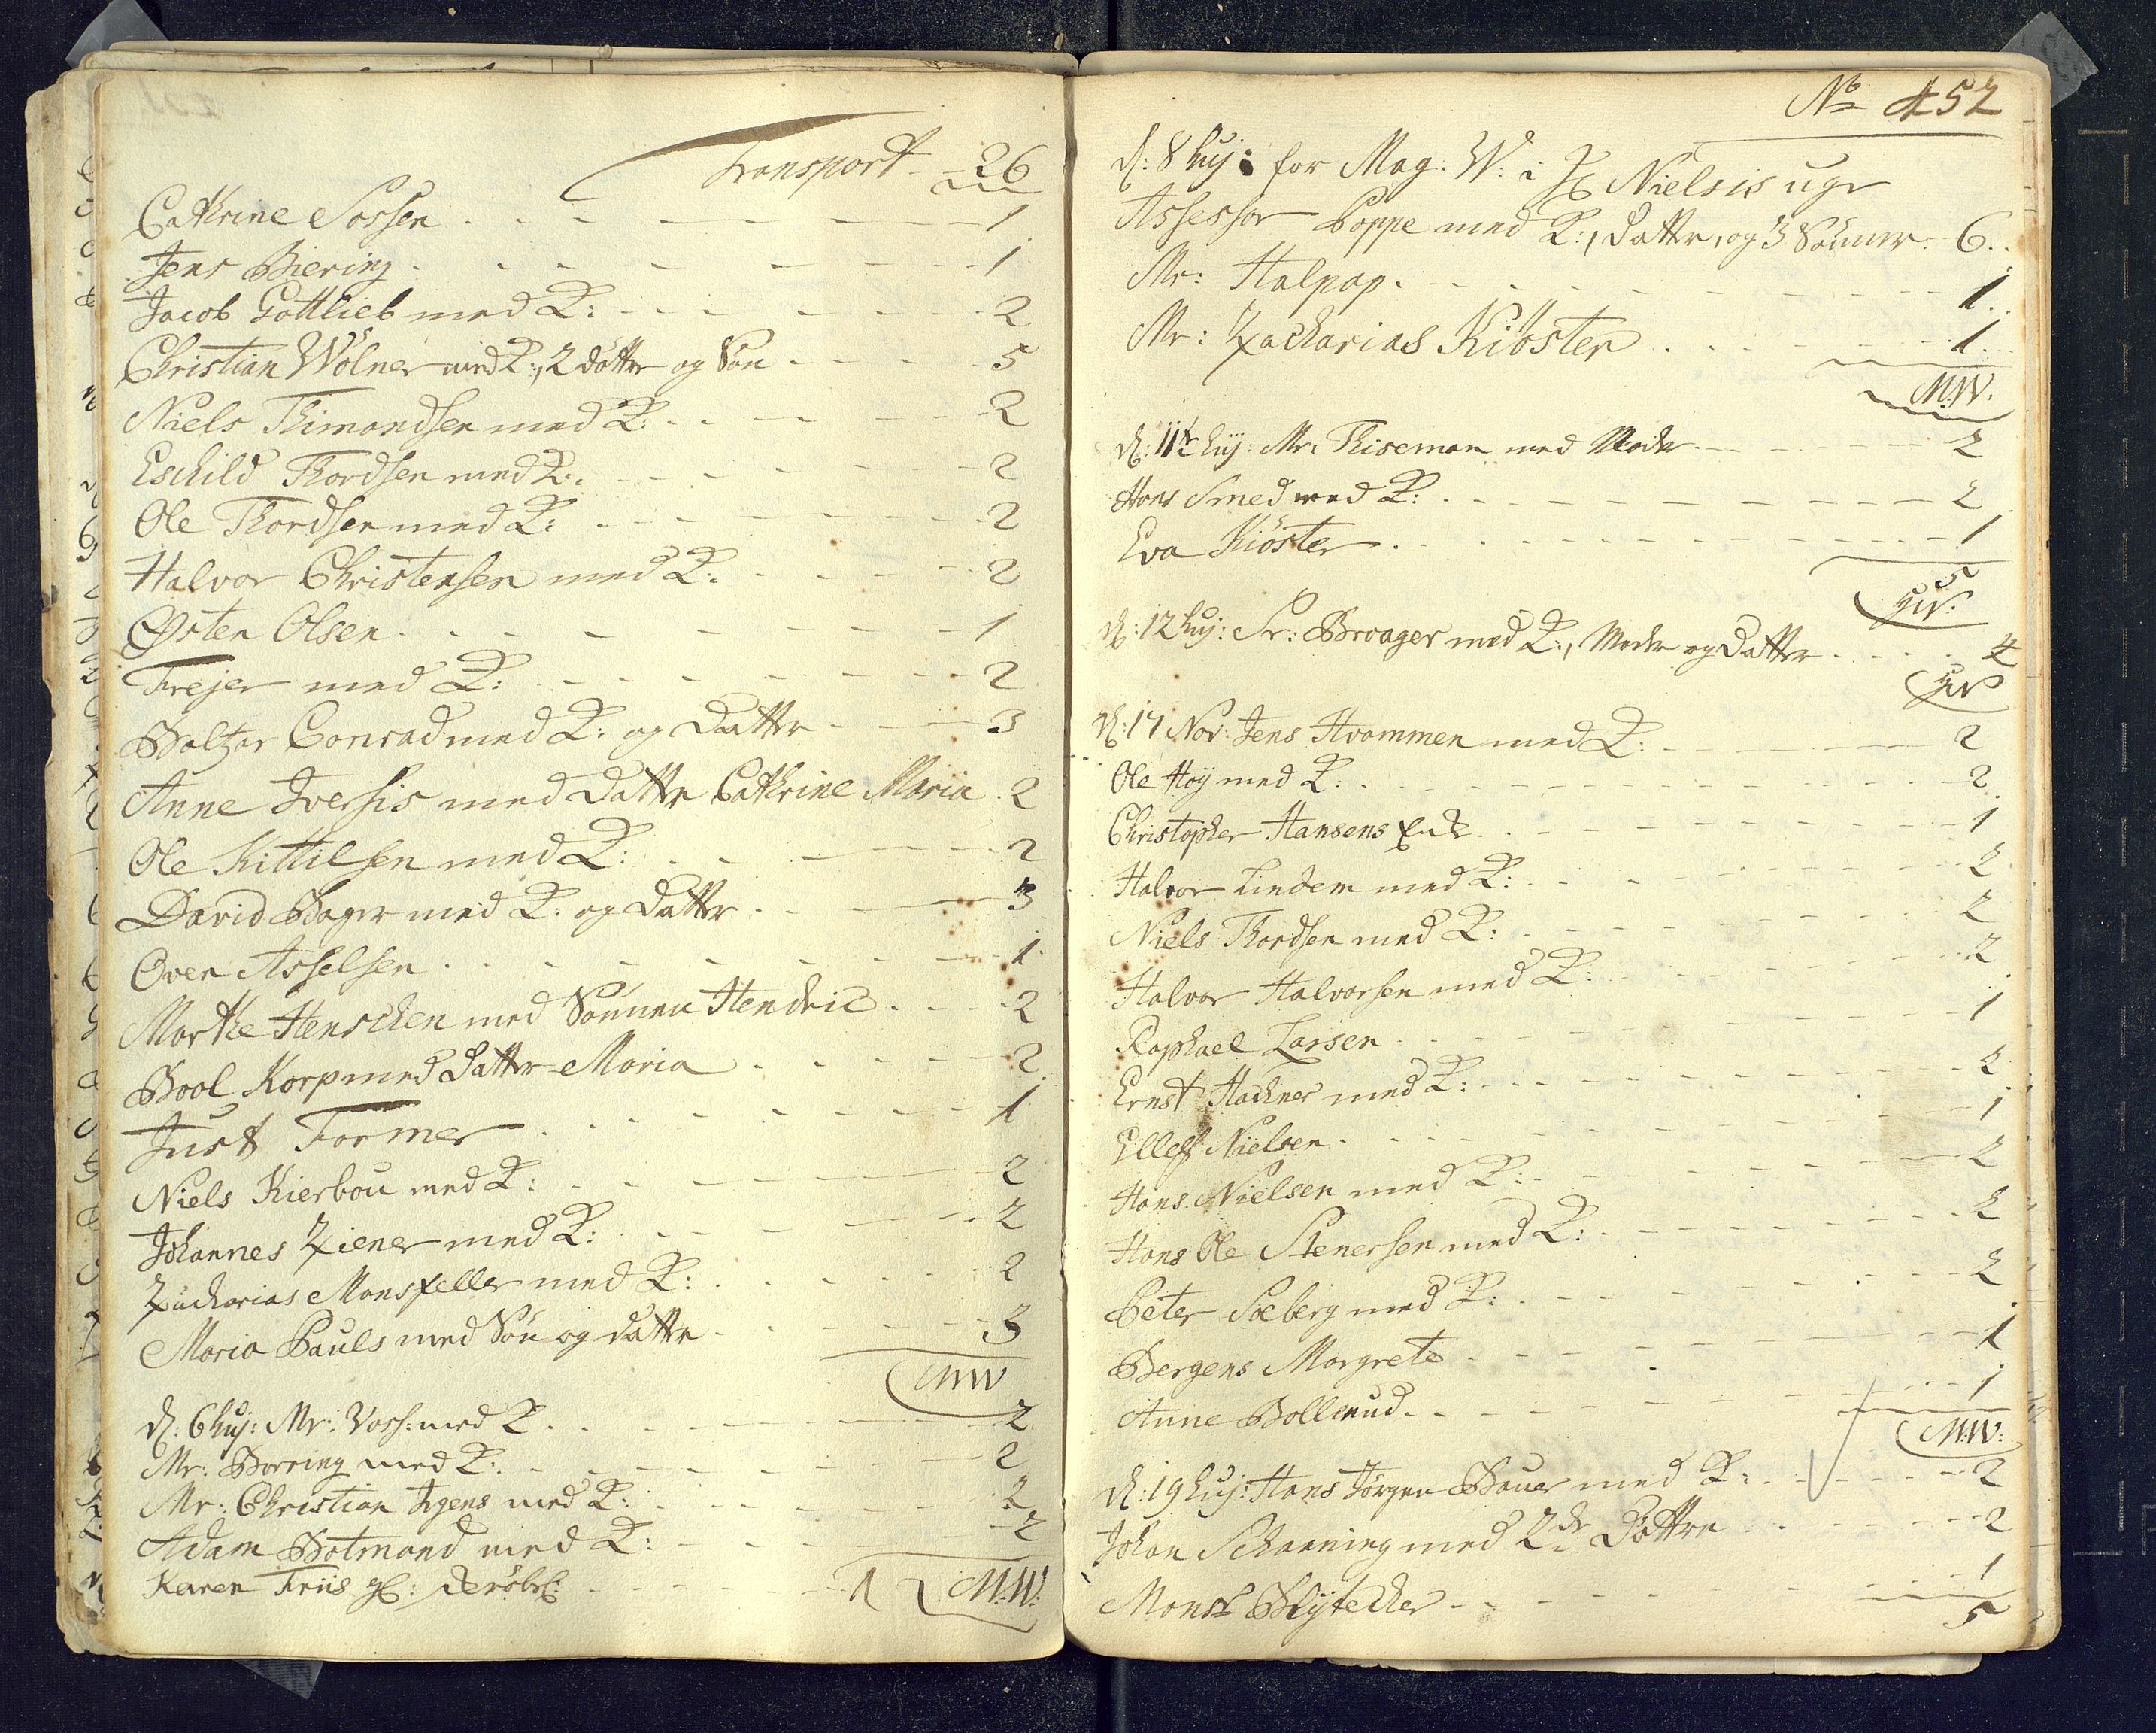 Transport - 26
Cathrine Sossen - 1
Jens Biering - 1
Jacob Gottlieb med K: - 2
Christian Wölner med K:, 2 döttr og Sön - 5
Niels Thimandsen med K: - 2
Eschild Thordsen med K: - 2
Ole Thordsen med K: - 2
Halvor Christensen med K: - 2
Østen Olsen - 1
Frejer med K: - 2
Baltzar Conrad med K: og Dattr - 3
Anne Iversis med Dattr Cathrine Maria 2
Ole Kittilsen med K: - 2
David Bager med K: og Dattr - 3
Oven Asselsen - 1
Marthe Henschen med Sönnen Hendric - 2
Bool Korp med Dattr Maria - 2
Just Former - 1
Niels Kierbou med K: - 2
Johannes Ziener med K: - 2
Zacharias Mansfeller med K: - 2
Maria Pauls med Sön og dattr - 3
MW
d: 6 huj: Mr: Voss: med K - 2
Mr: Borring med K: - 2
Mr: Christian Irgens med K: - 2
Adam Botmand med K: - 2
Karen Friis - 1 M.W:
No 452
d: 8 huj: for Mag: W: i Nielsis ugr
Assessor Poppe med K:, Dattr, og 3 Sönner - 6
Mr: Halpap - 1
Mr: Zacharias Kiöster - 1
M.W.
d: 11te huj: Mr: Thiseman med Moder - 2
Hans Smed med K: - 2
Eva Kiöster - 1
5
d: 12 huj: Sr: Broager med K:, Moder og Dattr - 4
d: 17 Nov: Jens Hvammen med K: - 2
Ole Høy med K: - 2
Christopher Hansens Enke - 1
Halvor Lindem med K: - 2
Niels Thordsen med K: - 2
Halvor Halvorsen med K: - 2
Raphael Larsen - 1
Ernst Hackner med K: - 2
Ellef Nielsen - 1
Hans Nielsen med K: - 2
Hans Ole Stenersen med K: - 2
Peter Soeberg med K: - 2
Bergens Margrete - 1
Anne Bollerud - 1
M:W:
d: 19 huj: Hans Jörgen Bauer med K: - 2
Johan Schanning med 2de Döttre - 2
Monsr Blytecher - 1
5